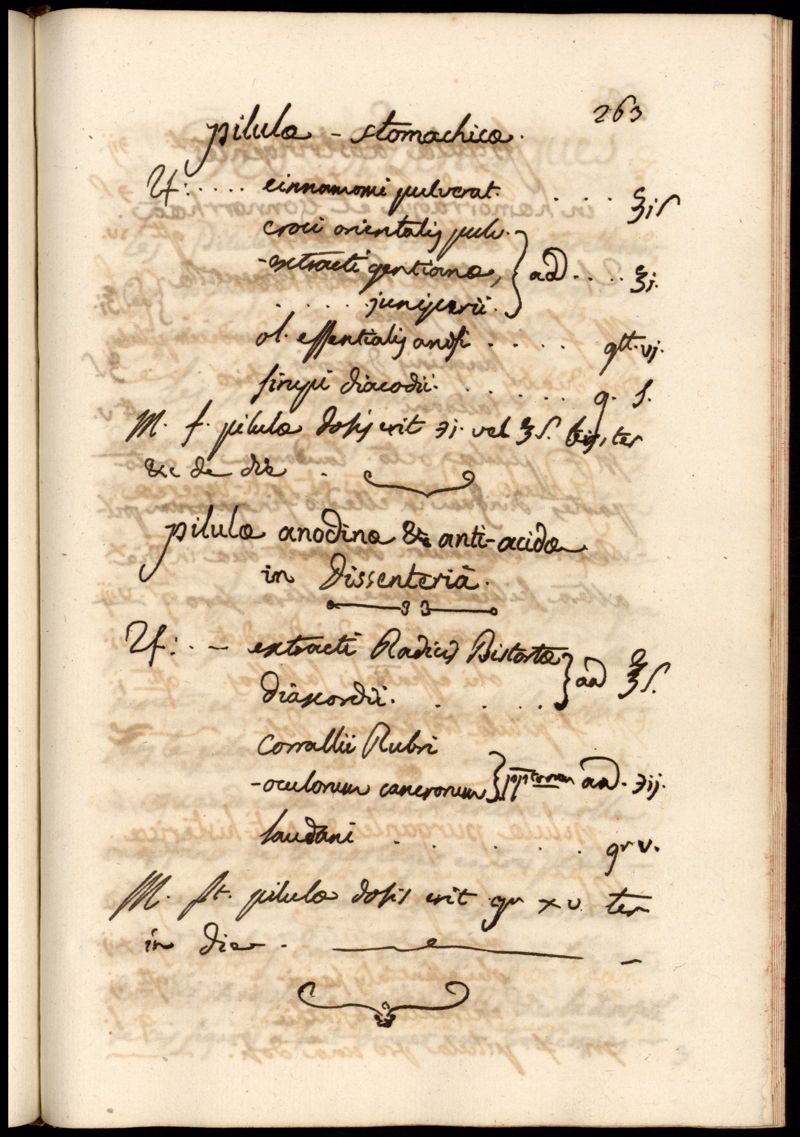 263
pilulæ - stomachicæ.
℞: ..... cinnamomi pulverat. . . . . ʒiſ
croci orientalis pulv.
-extracti gentianæ, } aa . . . . ʒi.
. . . . . juniperii.
ol. essentialis anisi . . . . . gtt. vj.
sirupi diacodii. . . . . . . q. s.
M. f. pilulæ dosis erit ℈j. vel ʒſ. bis, ter
&c de die .
pilulæ anodinæ & anti-acidæ
in Dissenteriâ.
℞: . - extracti Radicis Bistortæ
diascordii. . . . . . } aa ʒſ.
Corrallii Rubri
-oculorum cancrorum } aa. ℈ij.
laudani . . . . . . . gr v.
M. ft. pilulæ dosis erit gr xv ter
in die - .